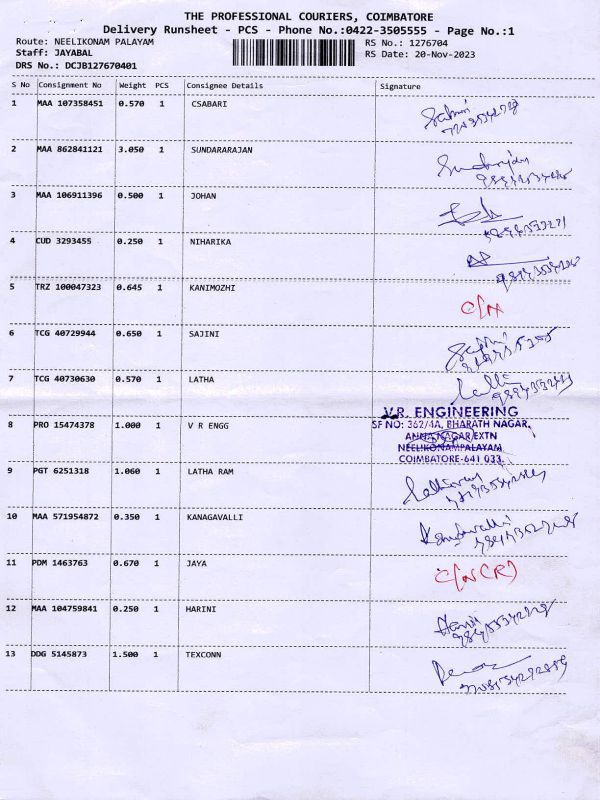 THE PROFESSIONAL COURIERS, COIMBATORE
Delivery Runsheet - PCS - Phone No.:0422-3505555 - Page No.:1
Route: NEELIKONAM PALAYAM RS No.: 1276704
Staff: JAYABAL RS Date: 20-Nov-2023
DRS No.: DCJB127670401
S No Consignment No Weight PCS Consignee Details Signature
1 MAA 107358451 0.570 1 CSABARI
2 MAA 862841121 3.050 1 SUNDARARAJAN
3 MAA 106911396 0.500 1 JOHAN
4 CUD 3293455 0.250 1 NIHARIKA
5 TRZ 100047323 0.645 1 KANIMOZHI
6 TCG 40729944 0.650 1 SAJINI
7 TCG 40730630 0.570 1 LATHA
8 PRO 15474378 1.000 1 V R ENGG
V.R. ENGINEERING
SF NO: 362/4A, BHARATH NAGAR,
ANNA NAGAR EXTN
NEELIKONAMPALAYAM
COIMBATORE-641 033.
9 PGT 6251318 1.060 1 LATHA RAM
10 MAA 571954872 0.350 1 KANAGAVALLI
11 PDM 1463763 0.670 1 JAYA
12 MAA 104759841 0.250 1 HARINI
13 DDG 5145873 1.500 1 TEXCONN